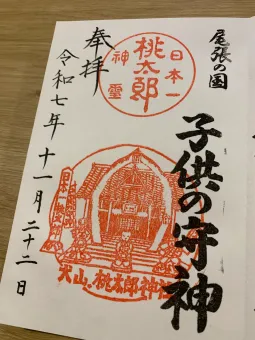 尾張の国
子供の守神
日本一
桃太郎
神霊
奉拝
令和七年十一月二十二日
犬山。桃太郎神社